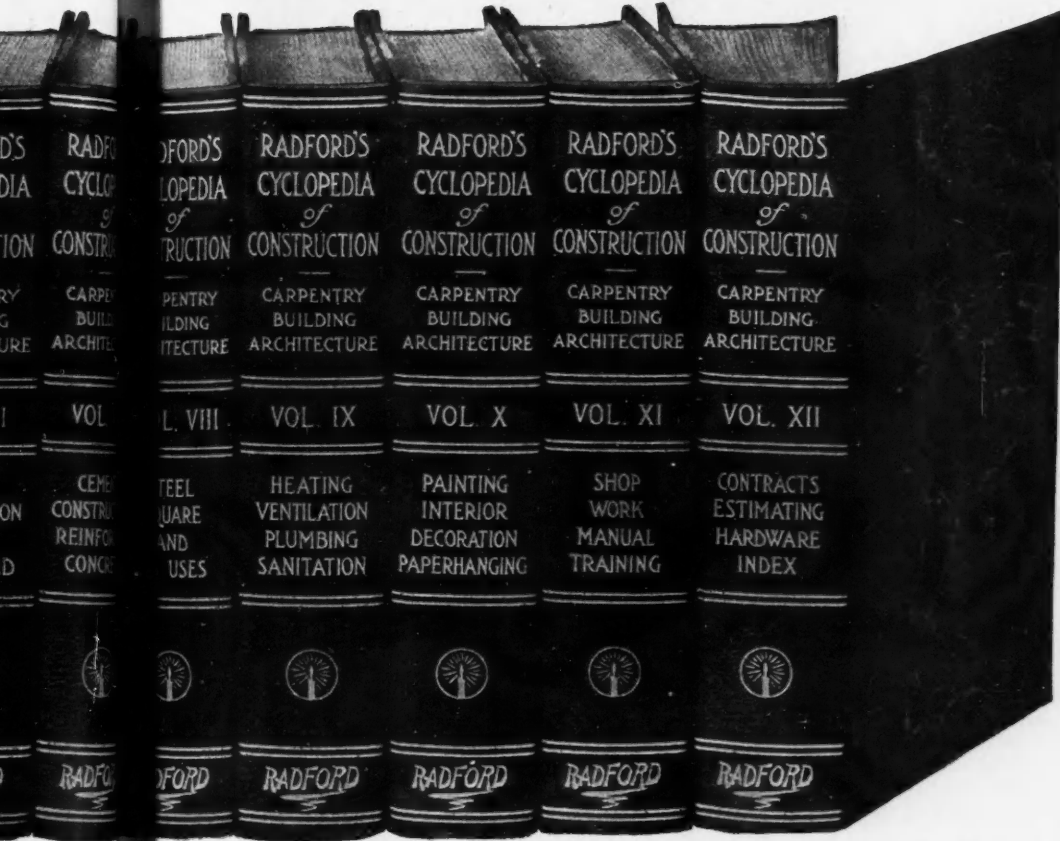 D'S
DIA
TION
RY
G
URE
I
ON
D
RADFO
CYCLOP
of
CONSTRU
CARPEN
BUILD
ARCHITE
VOL.
CEME
CONSTRUC
REINFOR
CONCRE
RADFO
DFORD'S
LOPEDIA
of
TRUCTION
PENTRY
ILDING
ITECTURE
L. VIII
TEEL
QUARE
AND
USES
DFORD
RADFORD'S
CYCLOPEDIA
of
CONSTRUCTION
CARPENTRY
BUILDING
ARCHITECTURE
VOL. IX
HEATING
VENTILATION
PLUMBING
SANITATION
RADFORD
RADFORD'S
CYCLOPEDIA
of
CONSTRUCTION
CARPENTRY
BUILDING
ARCHITECTURE
VOL. X
PAINTING
INTERIOR
DECORATION
PAPERHANGING
RADFORD
RADFORD'S
CYCLOPEDIA
of
CONSTRUCTION
CARPENTRY
BUILDING
ARCHITECTURE
VOL. XI
SHOP
WORK
MANUAL
TRAINING
RADFORD
RADFORD'S
CYCLOPEDIA
of
CONSTRUCTION
CARPENTRY
BUILDING
ARCHITECTURE
VOL. XII
CONTRACTS
ESTIMATING
HARDWARE
INDEX
RADFORD